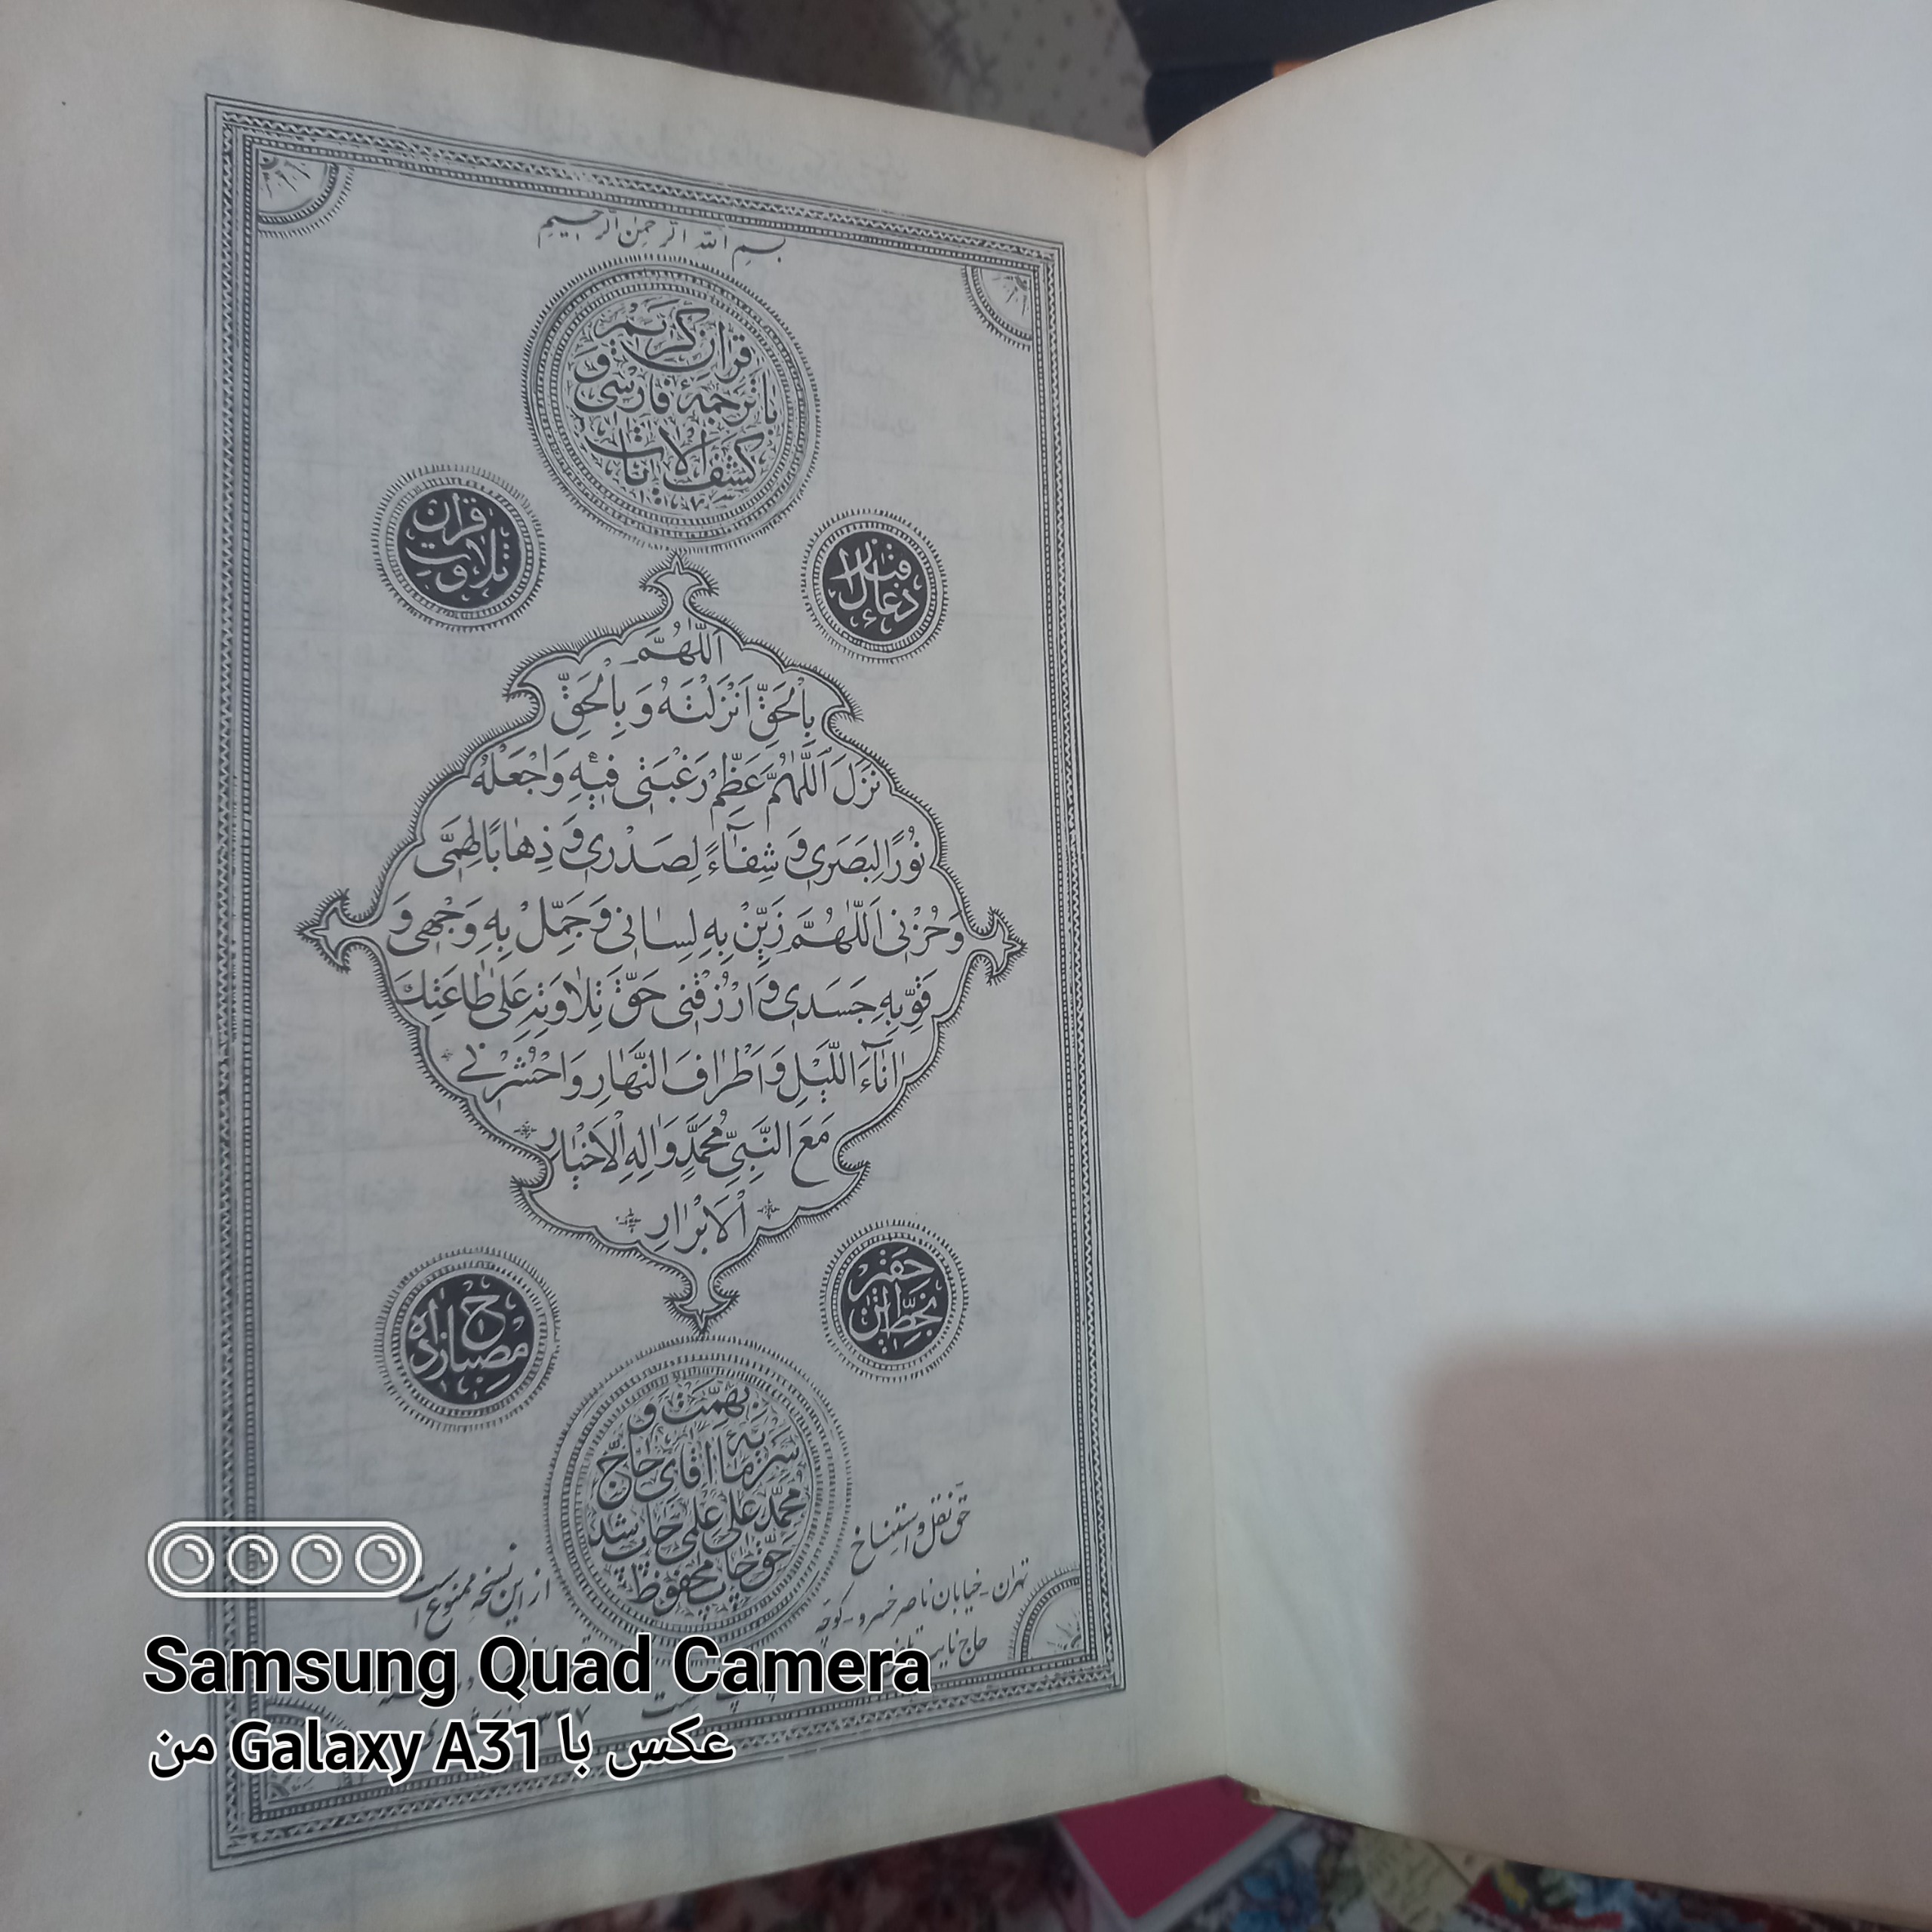 بسم الله الرحمن الرحیم
قرآن کریم
با ترجمهٔ فارسی و
کشف الآیات
دعاء قبل از
تلاوت قرآن
اَللّهُمَّ
بِالْحَقِّ اَنْزَلْتَهُ وَ بِالْحَقِّ
نَزَلَ اَللّهُمَّ عَظِّمْ رَغْبَتی فیهِ وَاجْعَلْهُ
نُورًا لِبَصَری وَ شِفآءً لِصَدْری وَ ذِهابًا لِهَمّی
وَحُزْنی اَللّهُمَّ زَیِّنْ بِهِ لِسانی وَ جَمِّلْ بِهِ وَجْهی وَ
قَوِّ بِهِ جَسَدی وَ ارْزُقْنی حَقَّ تِلاوَتِهِ عَلی طاعَتِكَ
اناءَ اللَّیْلِ وَ اَطْرافَ النَّهارِ وَاحْشُرْنی
مَعَ النَّبِیِّ مُحَمَّدٍ وَالِهِ الْاَخْیارِ
الْاَبْرارِ
بخط
ح مصباح زاده
بهمت و
سرمایهٔ آقای حاج
محمد علی علمی چاپ شد
حق چاپ محفوظ
حق نقل و استنساخ
از این نسخه ممنوع است
تهران - خیابان ناصر خسرو - کوچه
حاج نایب
Samsung Quad Camera
عکس با Galaxy A31 من